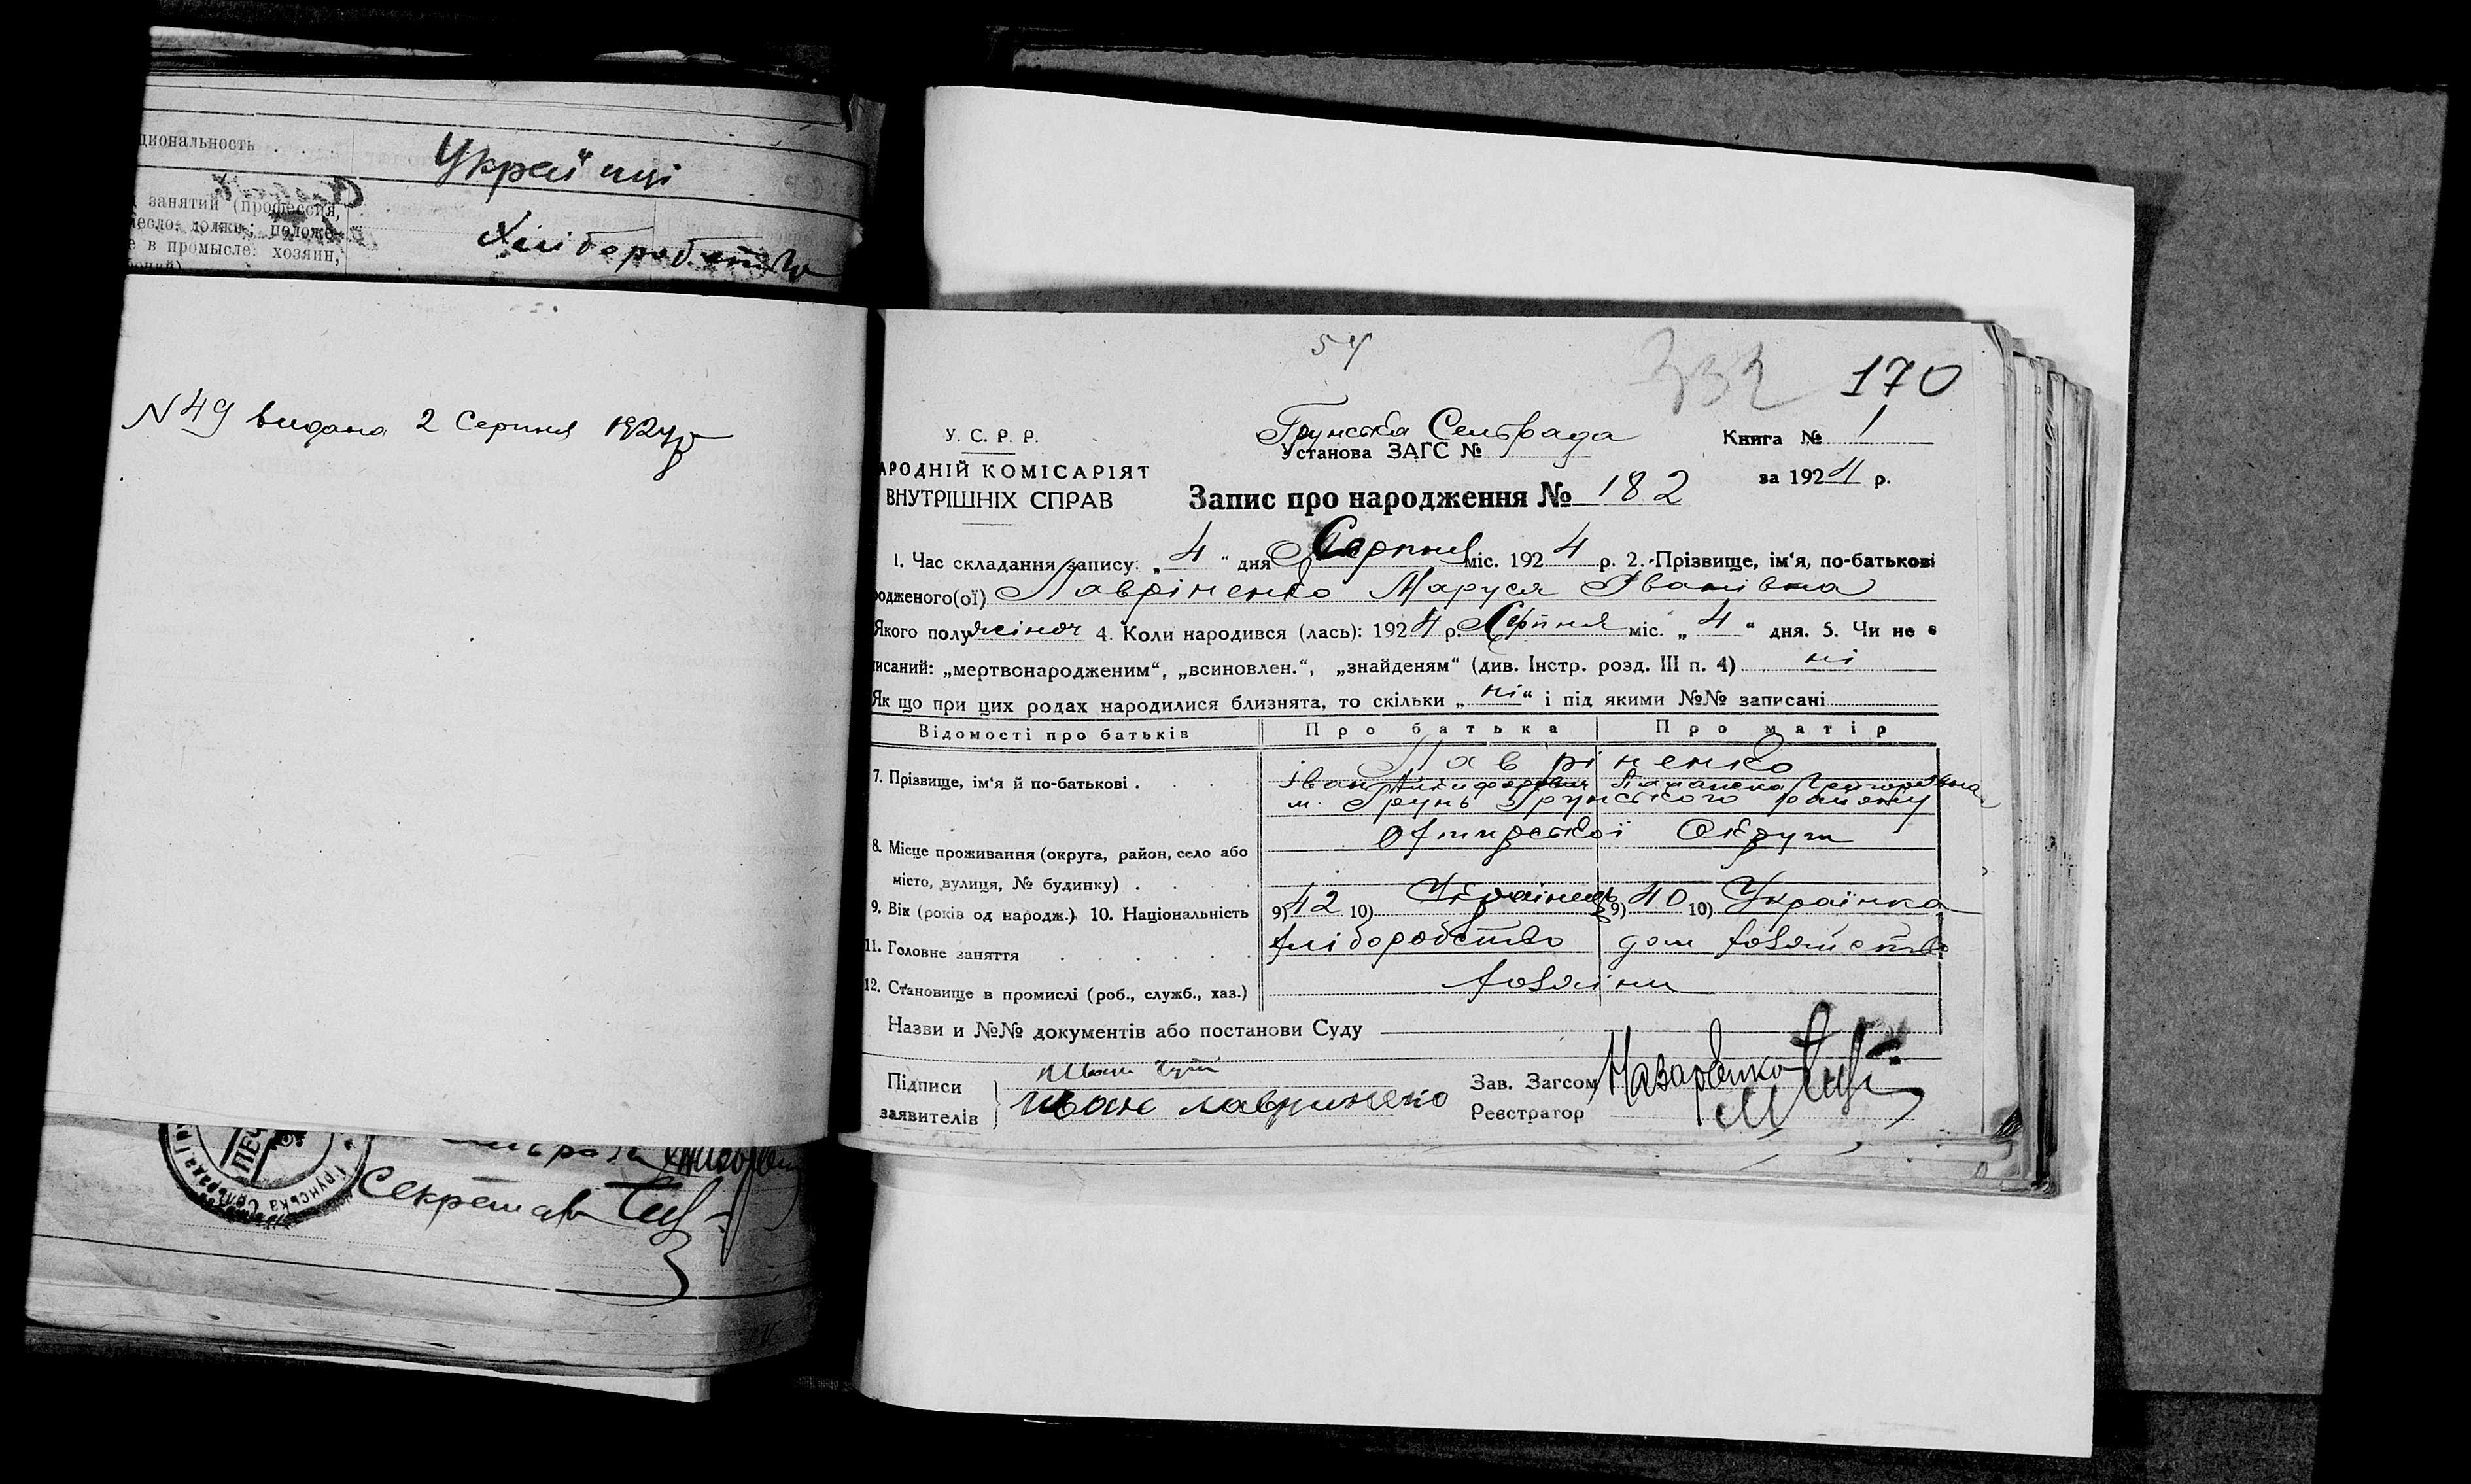 циональность . . . Украйнці
занятий (профессия,
месло: должн; положе- Хліборобство
е в промысле: хозяин,
N 49 видана 2 Серпня 1924 р
Секретар
54
332 170
Грунська Сельрада
У. С. Р. Р. Установа ЗАГС № Книга № 1
АРОДНІЙ КОМІСАРІЯТ
ВНУТРІШНІХ СПРАВ
за 1924 р.
Запис про народження № 182
1. Час складання запису: „4“ дня Серпня міс. 1924 р. 2. Прізвище, ім‘я, по-батькові
родженого(ої) Лавріненко Маруся Іванівна
Якого полу жіноч 4. Коли народився (лась): 1924 р. Серпня міс. „4“ дня. 5. Чи не є
писаний: „мертвонародженим“, „всиновлен.“, „знайденям“ (див. Інстр. розд. III п. 4) ні
Як що при цих родах народилися близнята, то скільки „ні“ і під якими №№ записані
Відомості про батьків Про батька Про матір
Лавріненко
7. Прізвище, ім‘я й по-батькові . . . . Іван Григоровна
м. Грунь Грунського району
Охтирської Округи
8. Місце проживання (округа, район, село або
місто, вулиця, № будинку) . . . .
9. Вік (років од народж.) 10. Національність 9) 42 10) Українець 9) 40 10) Українка
11. Головне заняття . . . . . . хліборобство дом хозяйство
12. Становище в промислі (роб., служб., хаз.) хозяіни
Назви и №№ документів або постанови Суду
Підписи
заявителів Иван лавриненко
Зав. Загсом Назаренко
Реєстратор